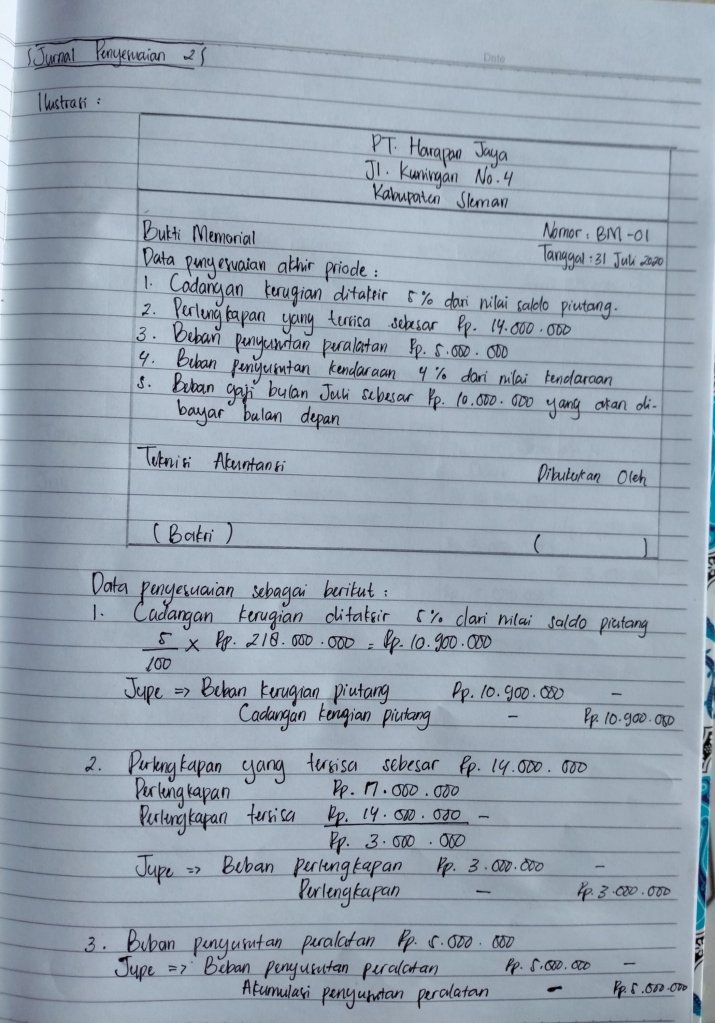 {Jurnal Penyesuaian 2}
Date
Ilustrasi :
PT. Harapan Jaya
Jl. Kuningan No. 4
Kabupaten Sleman
Bukti Memorial Nomor : BM-01
Tanggal : 31 Juli 2020
Data penyesuaian akhir priode :
1. Cadangan kerugian ditaksir 5% dari nilai saldo piutang.
2. Perlengkapan yang tersisa sebesar Rp. 14.000.000
3. Beban penyusutan peralatan Rp. 5.000.000
4. Beban penyusutan kendaraan 4% dari nilai kendaraan
5. Beban gaji bulan Juli sebesar Rp. 10.000.000 yang akan di-
bayar bulan depan
Teknisi Akuntansi Dibukukan Oleh
(Bakri) ( )
Data penyesuaian sebagai berikut :
1. Cadangan kerugian ditaksir 5% dari nilai saldo piutang
5/100 × Rp. 218.000.000 = Rp. 10.900.000
Jupe => Beban kerugian piutang Rp. 10.900.000 -
Cadangan kerugian piutang - Rp. 10.900.000
2. Perlengkapan yang tersisa sebesar Rp. 14.000.000
Perlengkapan Rp. 17.000.000
Perlengkapan tersisa Rp. 14.000.000 -
Rp. 3.000.000
Jupe => Beban perlengkapan Rp. 3.000.000 -
Perlengkapan - Rp. 3.000.000
3. Beban penyusutan peralatan Rp. 5.000.000
Jupe => Beban penyusutan peralatan Rp. 5.000.000 -
Akumulasi penyusutan peralatan - Rp. 5.000.000